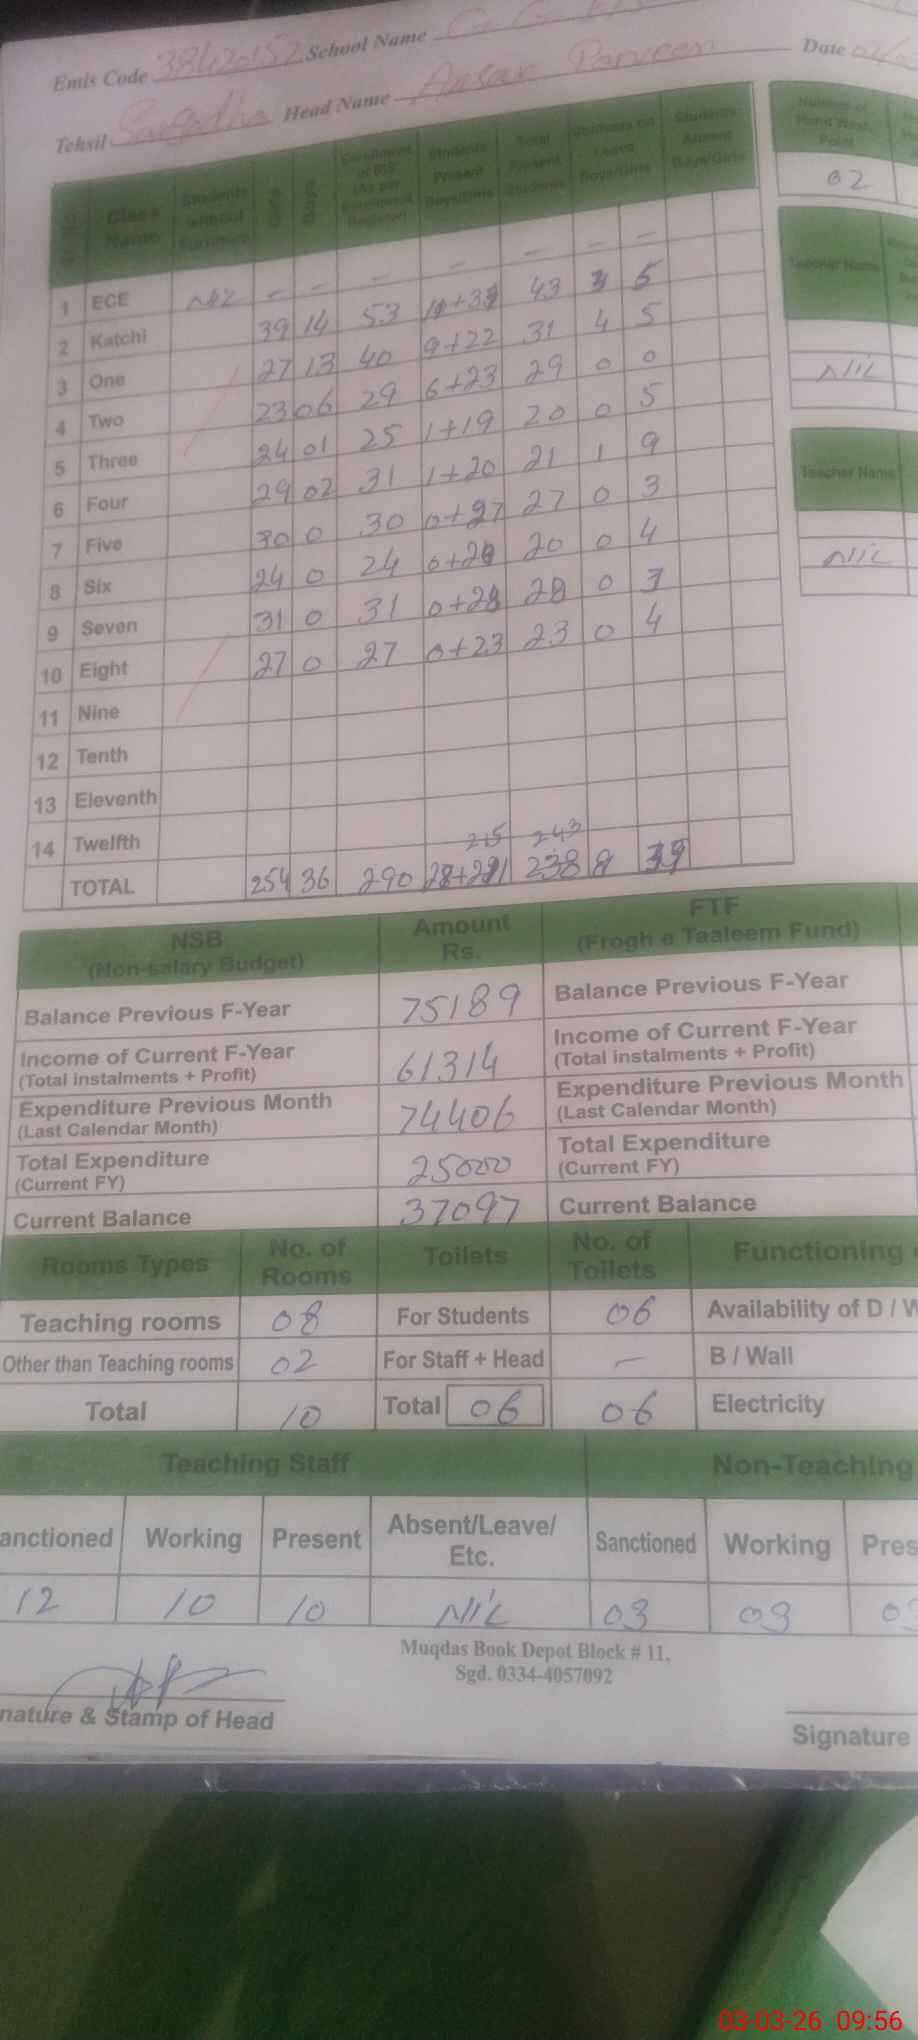 Emis Code 38420152 School Name G G
Tehsil Sargodha Head Name Ansar Parveen Date
Class Name Students without Girls Boys Enrolment As per Enrolment Register Students Present Boys/Girls Total Present Students Students on Leave Boys/Girls Students Absent Boys/Girls
Number of Hand Wash Point
02
Teacher Name
NIL
Teacher Name
NIL
1 ECE NIL - - - - - - -
2 Katchi 39 14 53 43 5
3 One 27 13 40 9+22 31 4 5
4 Two 23 06 29 6+23 29 0 0
5 Three 24 01 25 1+19 20 0 5
6 Four 29 02 31 1+20 21 1 9
7 Five 30 0 30 0+27 27 0 3
8 Six 24 0 24 0+20 20 0 4
9 Seven 31 0 31 0+28 28 0 3
10 Eight 27 0 27 0+23 23 0 4
11 Nine
12 Tenth
13 Eleventh
14 Twelfth 215 243
TOTAL 254 36 290 238 8 39
NSB (Non-salary Budget) Amount Rs. FTF (Frogh e Taaleem Fund)
Balance Previous F-Year 75189 Balance Previous F-Year
Income of Current F-Year (Total instalments + Profit) 61314 Income of Current F-Year (Total instalments + Profit)
Expenditure Previous Month (Last Calendar Month) 74406 Expenditure Previous Month (Last Calendar Month)
Total Expenditure (Current FY) 25000 Total Expenditure (Current FY)
Current Balance 37097 Current Balance
Rooms Types No. of Rooms Toilets No. of Toilets Functioning
Teaching rooms 08 For Students 06 Availability of D / W
Other than Teaching rooms 02 For Staff + Head - B / Wall
Total 10 Total 06 06 Electricity
Teaching Staff Non-Teaching
anctioned Working Present Absent/Leave/Etc. Sanctioned Working Pres
12 10 10 NIL 03 03
Muqdas Book Depot Block # 11,
Sgd. 0334-4057092
nature & Stamp of Head Signature
03-03-26 09:56